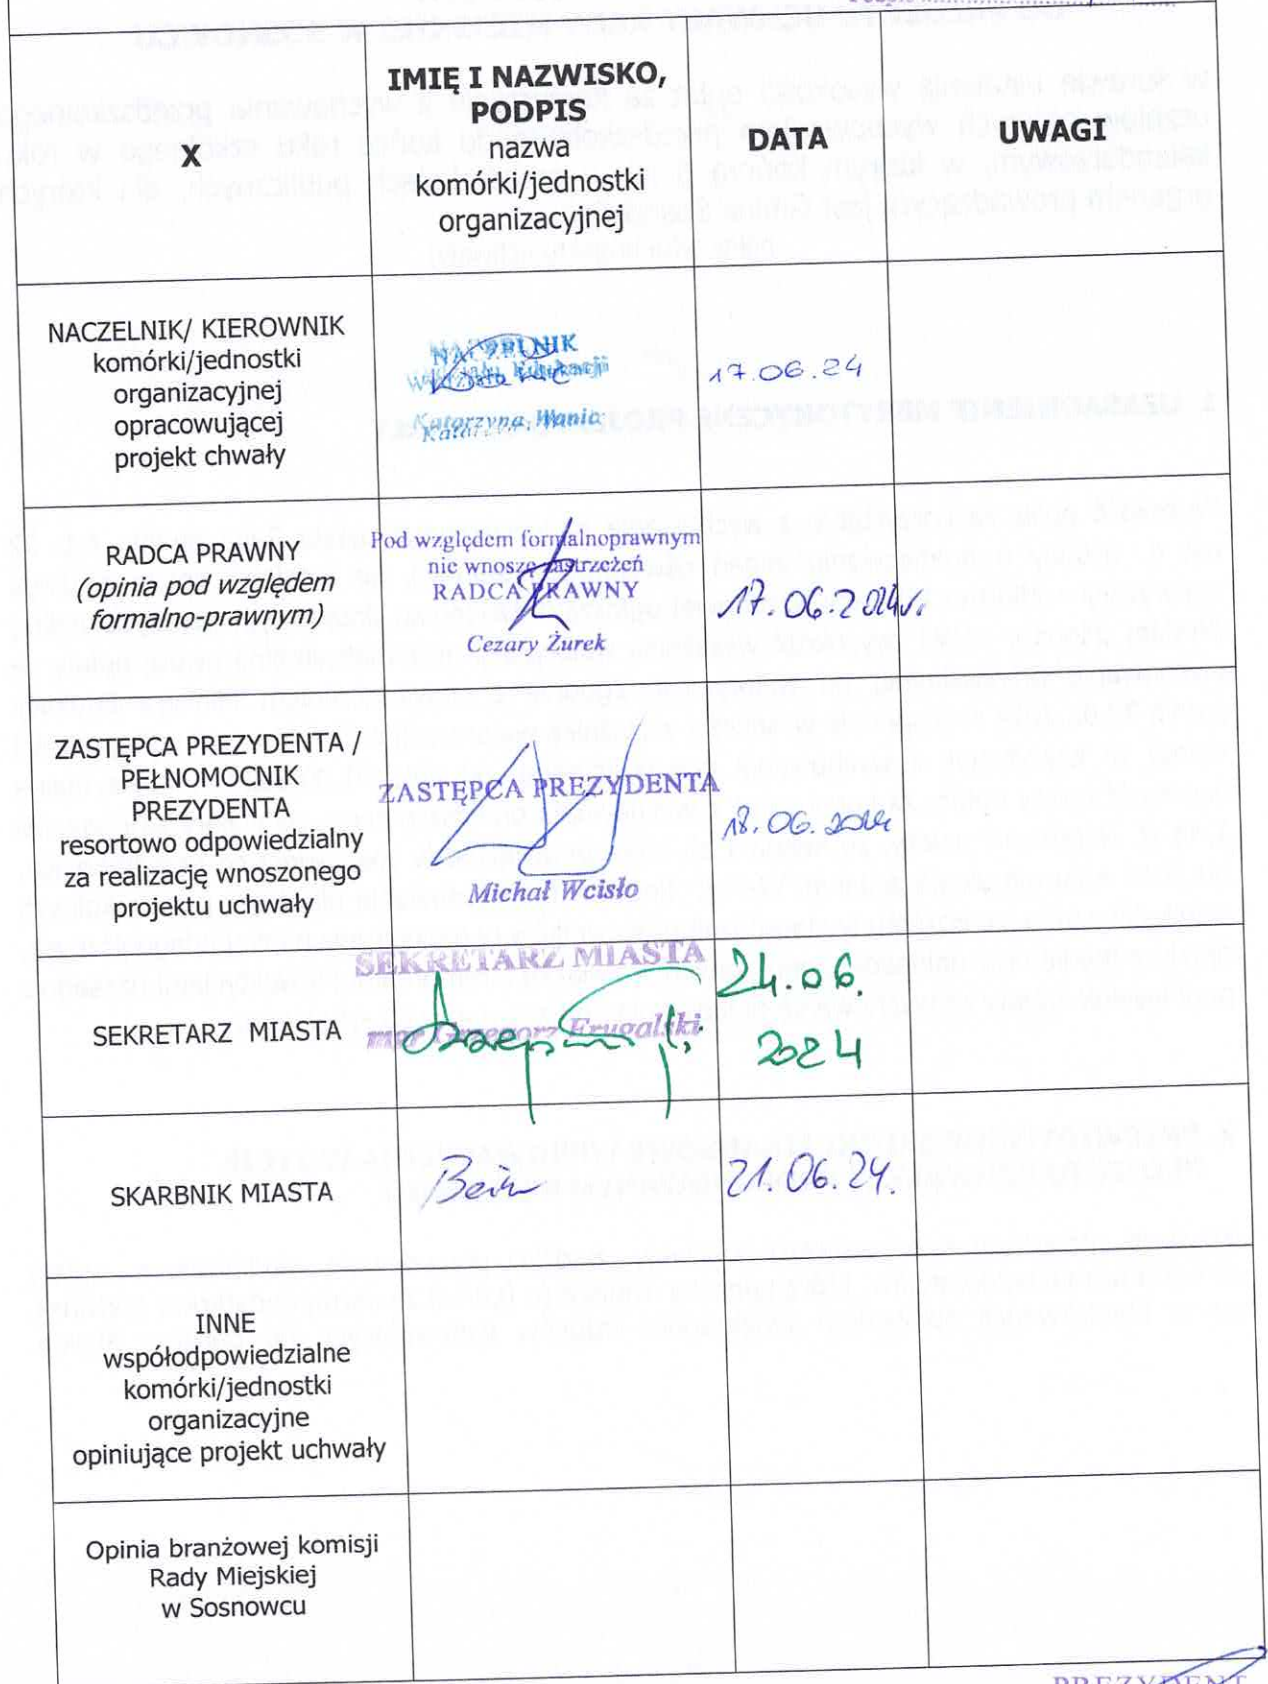 X
IMIĘ I NAZWISKO,
PODPIS
nazwa
komórki/jednostki
organizacyjnej
DATA
UWAGI
NACZELNIK/ KIEROWNIK
komórki/jednostki
organizacyjnej
opracowującej
projekt chwały
NACZELNIK
Wydziału Edukacji
Katarzyna Wanic
17.06.24
RADCA PRAWNY
(opinia pod względem
formalno-prawnym)
Pod względem formalnoprawnym
nie wnoszę zastrzeżeń
RADCA PRAWNY
Cezary Żurek
17.06.2024r.
ZASTĘPCA PREZYDENTA /
PEŁNOMOCNIK
PREZYDENTA
resortowo odpowiedzialny
za realizację wnoszonego
projektu uchwały
ZASTĘPCA PREZYDENTA
Michał Wcisło
18.06.2024
SEKRETARZ MIASTA
SEKRETARZ MIASTA
mgr Grzegorz Frugalski
24.06.
2024
SKARBNIK MIASTA
21.06.24.
INNE
współodpowiedzialne
komórki/jednostki
organizacyjne
opiniujące projekt uchwały
Opinia branżowej komisji
Rady Miejskiej
w Sosnowcu
PREZYDENT